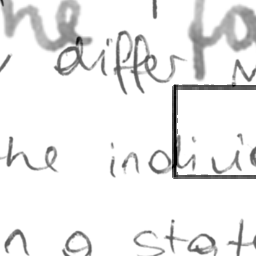 he fo
differ
he indivi
n a stat